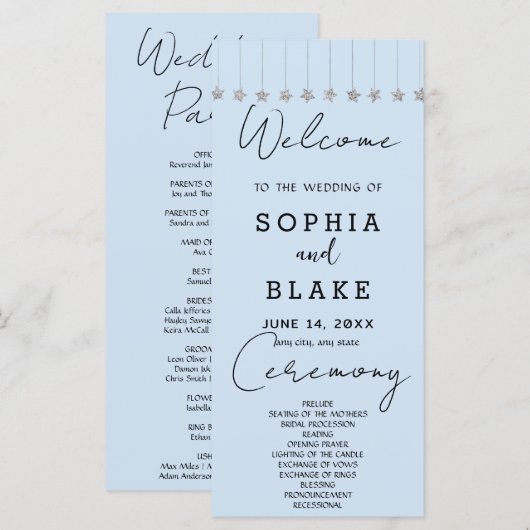 Wedd
Pa
OFFIC
Reverend Jan
PARENTS OF
Joy and Tho
PARENTS OF
Sandra and
MAID OF
Ava C
BEST
Samuel
BRIDES
Calla Jefferies
Hayley Sawye
Keira McCall
GROOM
Leon Oliver |
Damon Jak
Chris Smith |
FLOWE
Isabella
RING B
Ethan
USH
Max Miles | A
Adam Anderson
Welcome
TO THE WEDDING OF
SOPHIA
and
BLAKE
JUNE 14, 20XX
any city, any state
Ceremony
PRELUDE
SEATING OF THE MOTHERS
BRIDAL PROCESSION
READING
OPENING PRAYER
LIGHTING OF THE CANDLE
EXCHANGE OF VOWS
EXCHANGE OF RINGS
BLESSING
PRONOUNCEMENT
RECESSIONAL